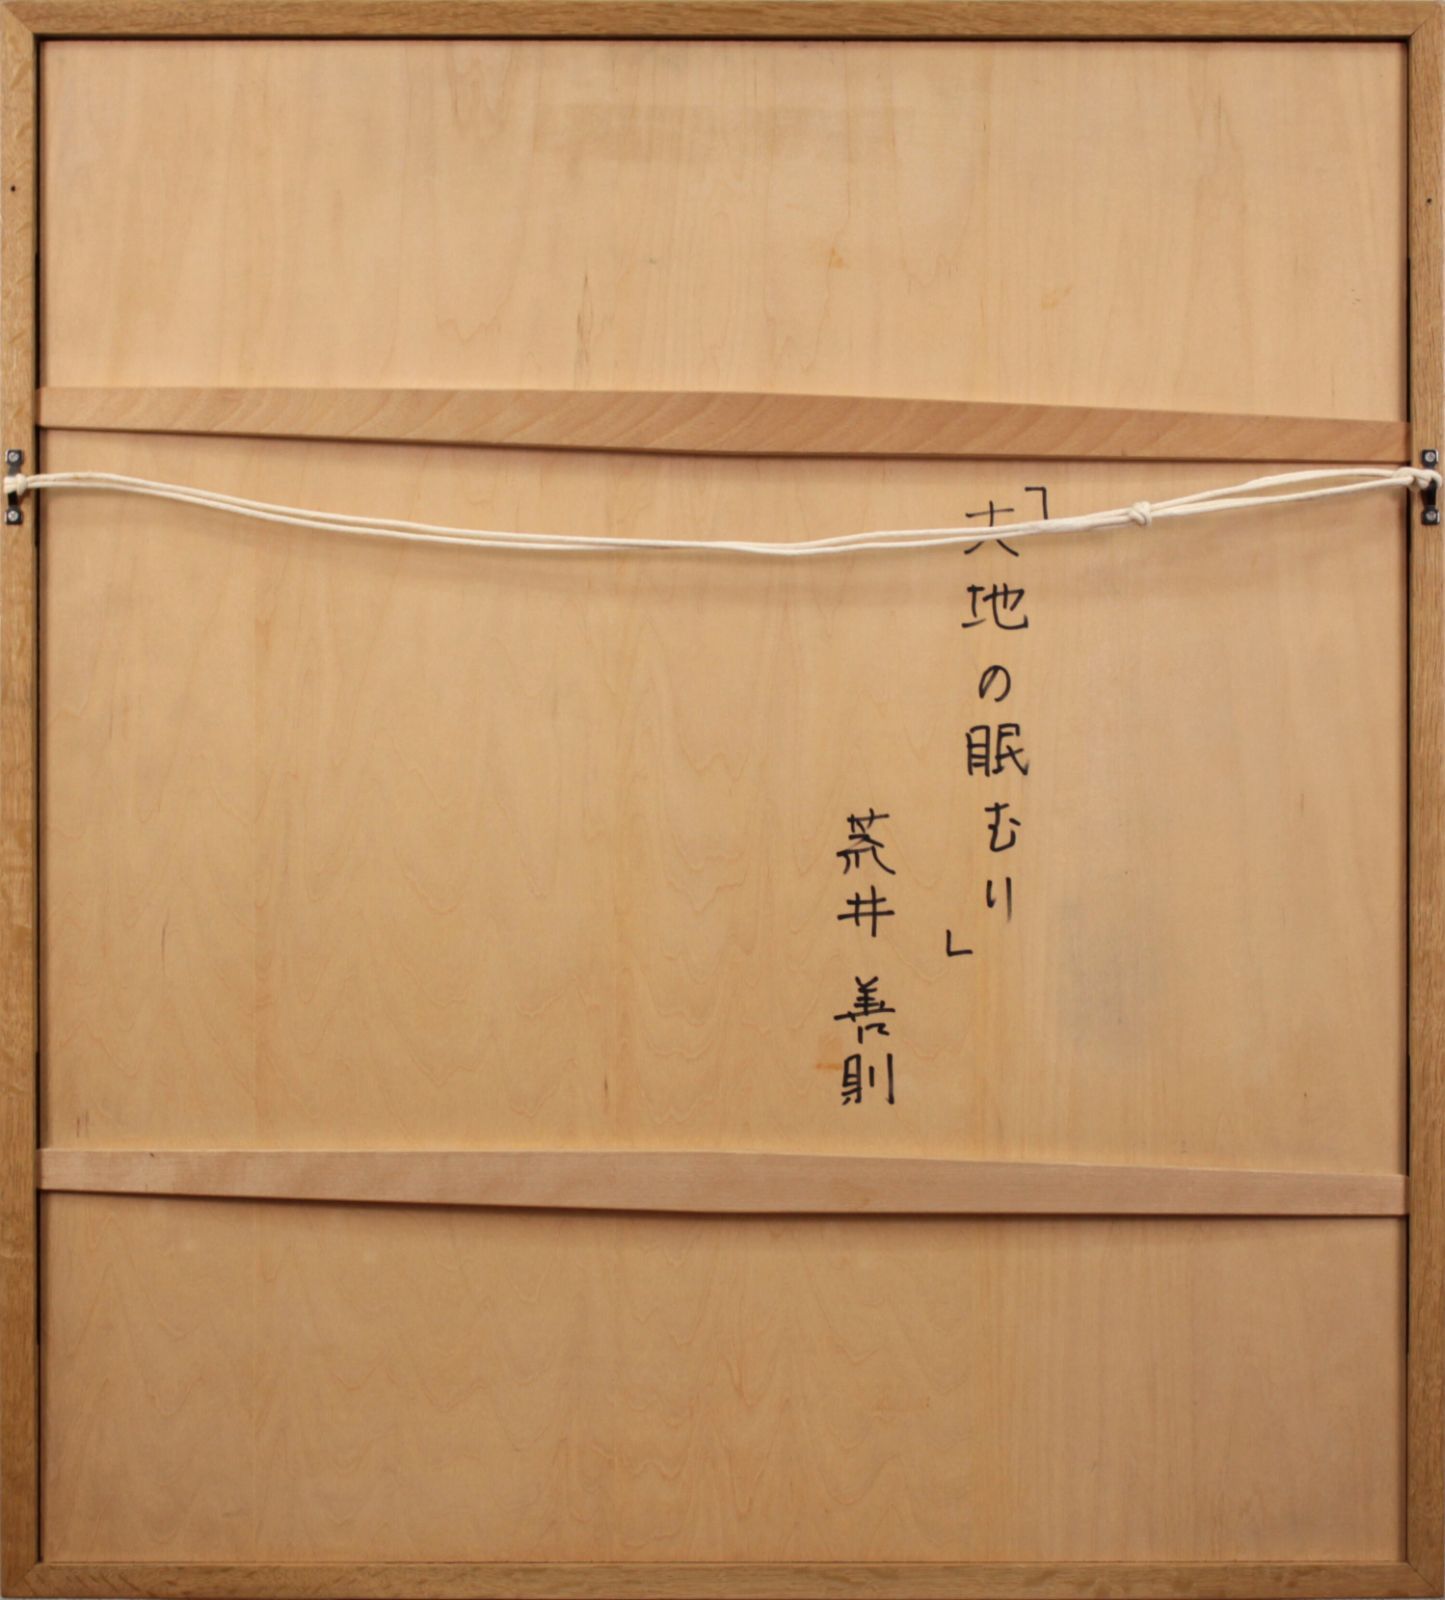 「大地の眠むり」
荒井善則